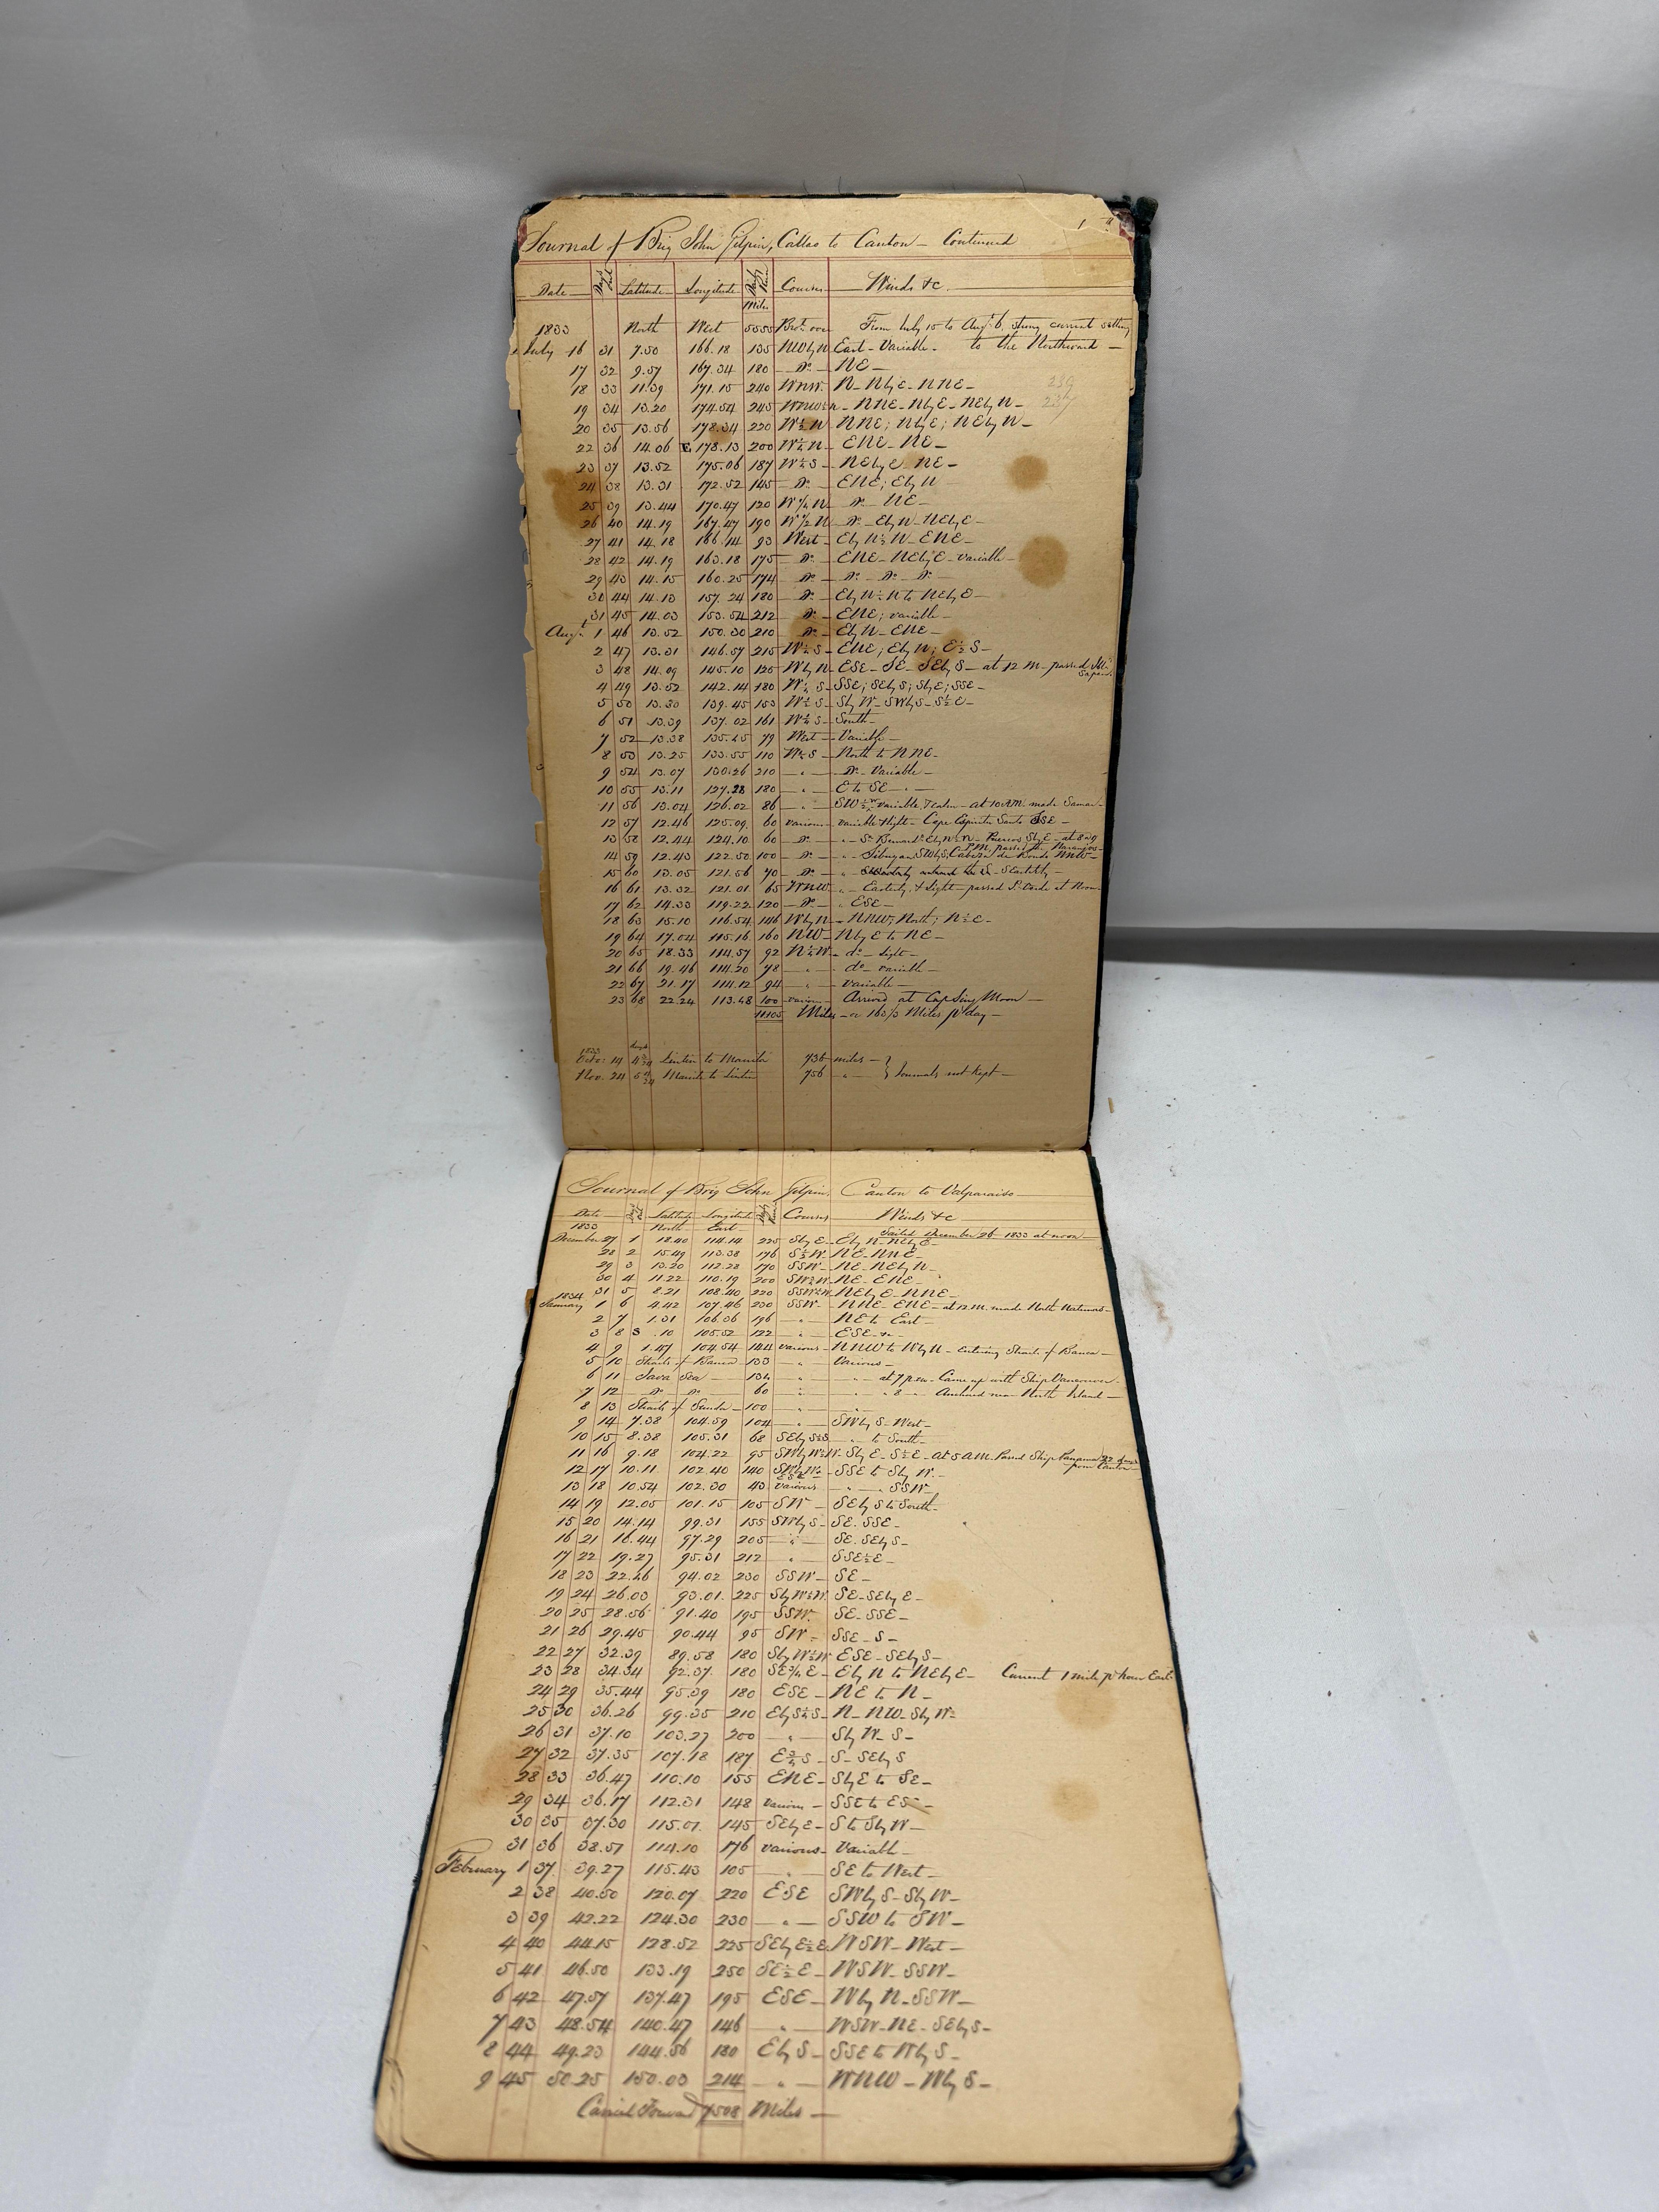 Journal of Brig John Gilpin, Callao to Canton - Continued
Date Latitude Longitude Courses Winds &c
Miles
1833 North West 5555 Brot. over From July 15 to Augt. 6, strong current setting
July 16 31 7.50 166.18 135 NWbyN East - Variable - to the Northward -
17 32 9.57 167.34 180 - Do. - NE -
18 33 11.39 171.15 240 WNW. N - NbyE - NNE - 239
19 34 13.20 174.54 245 NNE - NbyE - NEbyN - 237
20 35 13.56 178.34 220 W½N NNE; NbyE; NEbyN -
22 36 14.06 E. 178.13 200 ENE - NE -
23 37 13.52 175.06 187 NEbyE NE -
24 38 13.31 172.52 145 - Do. - ENE; EbyN
25 39 13.44 170.47 120 Do. NE -
26 40 14.19 167.47 190 W½N Do. - EbyN - NEbyE -
27 41 14.18 166.14 93 West - EbyN½N - ENE -
28 42 14.19 163.18 175 - Do. - ENE - NEbyE - variable -
29 43 14.15 160.25 174 - Do. - Do. - Do. - Do. -
30 44 14.13 157.24 180 - Do. - EbyN½N to NEbyE -
31 45 14.03 153.54 212 - Do. - ENE; variable -
Augt. 1 46 13.52 150.30 210 - Do. - EbyN - ENE -
2 47 13.31 146.57 215 ENE; EbyN; E½S -
3 48 14.09 145.10 125 WbyN ESE - SE - SEbyS - at 12 M. passed
4 49 13.52 142.14 180 SSE; SEbyS; SbyE; SSE -
5 50 13.30 139.45 153 SbyW - SWbyS - S½E -
6 51 13.39 137.02 161 South -
7 52 13.38 135.45 79 West - Variable -
8 53 13.25 133.55 110 North to NNE -
9 54 13.07 130.26 210 - " - Do. - Variable -
10 55 13.11 127.28 180 - " - E to SE - " -
11 56 13.04 126.02 86 - " - variable, & calm - at 10 AM. made Samar -
12 57 12.46 125.09 60 various variable & light - Cape Espiritu Santo SSE -
13 58 12.44 124.10 60 - Do. - " - St. Bernard. EbyN - SbyE - at 8 &9
P.M. passed the Naranjos -
14 59 12.43 122.50 100 - Do. - " - Sibuyan SWbyS, Cabeza de Bondo NNW -
15 60 13.05 121.56 70 - Do. -
16 61 13.32 121.01 65 WNW - " - Easterly, & light - passed at Noon
17 62 14.33 119.22 120 - Do. - " ESE -
18 63 15.10 116.54 146 WbyN - NNW; North; N½E -
19 64 17.04 115.16 160 NW - NbyE to NE -
20 65 18.33 114.57 92 N½W - do. - light -
21 66 19.46 114.20 78 - " - do. variable -
22 67 21.17 114.12 94 " - variable -
23 68 22.24 113.48 100 various - Arrived at Cap Sing Moon -
11105 Miles - or 163⅓ Miles pr. day -
1833
Octo. 14 Lintin to Manila 736 miles -
Nov. 24 Manila to Lintin 756 " - } Journals not kept -
Journal of Brig John Gilpin, Canton to Valparaiso -
Date Latitude Longitude Courses Winds &c
1833 North East Sailed December 26 - 1833 at noon -
December 27 1 18.40 114.14 225 SbyE - EbyN - NEbyE -
28 2 15.49 113.38 176 S½W - NE - NNE -
29 3 13.20 112.28 170 SSW - NE - NEbyN -
30 4 11.22 110.19 200 SW½W NE - ENE -
31 5 8.21 108.40 220 NEbyE - NNE -
1834
January 1 6 4.42 107.46 230 SSW - NNE - ENE - at 12 M. made North Natunas -
2 7 1.31 106.36 196 - " - NE to East -
3 8 S .10 105.32 122 - " - ESE &c -
4 9 1.47 104.54 144 various - NNW to WbyN - entering Straits of Banca -
5 10 Straits of Banca 133 - " - Various -
6 11 Java Sea - 134 - " - " - at 7 p.m. - Came up with Ship Vancouver -
7 12 - Do. - Do. - 60 " " 8 " Anchored near North Island -
8 13 Straits of Sunda - 100 " -
9 14 7.38 104.59 104 - " - SWbyS - West -
10 15 8.38 105.31 68 SEbyS½S - " - to South -
11 16 9.18 104.22 95 SWbyW½W. SbyE - S½E - at 5 AM. Passed Ship Panama 22 days
from Canton -
12 17 10.11 102.40 140 SSE to SbyW. -
13 18 10.54 102.30 43 various " - " - SSW -
14 19 12.05 101.15 105 SW - SEbyS to South -
15 20 14.14 99.31 155 SWbyS - SE. SSE -
16 21 16.44 97.29 205 - " - SE. SEbyS -
17 22 19.27 95.31 212 " SSE½E -
18 23 22.46 94.02 230 SSW - SE -
19 24 26.03 93.01 225 SbyW½W. SE - SEbyE -
20 25 28.56 91.40 195 SSW. SE - SSE -
21 26 29.45 90.44 95 SW - SSE - S -
22 27 32.39 89.58 180 SbyW½W ESE - SEbyS -
23 28 34.34 92.37 180 EbyN to NEbyE - Current 1 mile pr. hour East -
24 29 35.44 95.39 180 ESE - NE to N -
25 30 36.26 99.35 210 EbyS½S - N - NW - SbyW -
26 31 37.10 103.27 200 - " - SbyW - S -
27 32 37.35 107.18 187 S - SEbyS
28 33 36.47 110.10 155 ENE - SbyE to SE -
29 34 36.17 112.31 148 various - SSE to ES -
30 35 37.30 115.07 145 SEbyE - S to SbyW -
31 36 38.57 114.10 176 various - Variable -
February 1 37 39.27 115.43 105 - " - SE to West -
2 38 40.50 120.07 220 ESE SWbyS - SbyW -
3 39 42.22 124.30 230 - " - SSW to SW -
4 40 44.15 128.52 225 SEbyE½E. WSW - West -
5 41 46.50 133.19 250 SE½E - WSW - SSW -
6 42 47.57 137.47 195 ESE - WbyN - SSW -
7 43 48.54 140.47 146 - " - WSW - NE - SEbyS -
8 44 49.23 144.56 180 EbyS - SSE to WbyS -
9 45 50.25 150.03 214 - " - WNW - WbyS -
Carried Forward 7508 Miles -